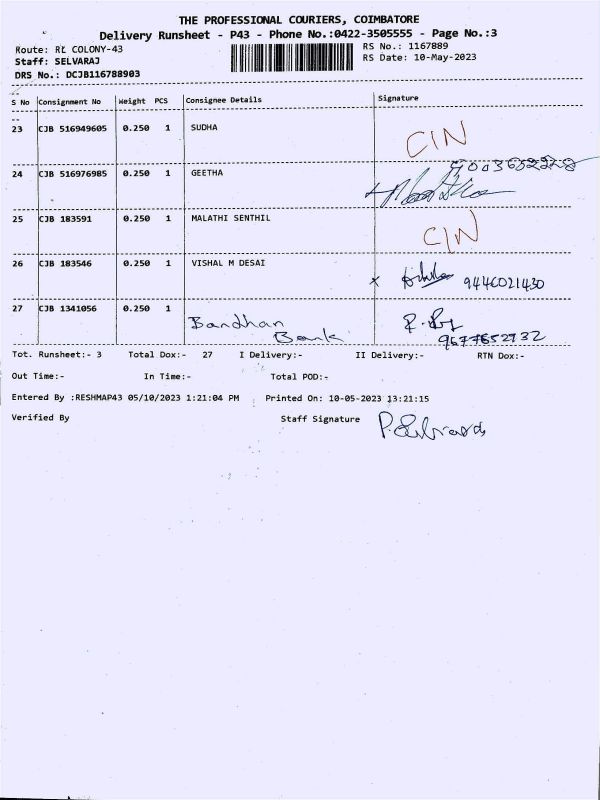 THE PROFESSIONAL COURIERS, COIMBATORE
Delivery Runsheet - P43 - Phone No.:0422-3505555 - Page No.:3
Route: RL COLONY-43
RS No.: 1167889
Staff: SELVARAJ
RS Date: 10-May-2023
DRS No.: DCJB116788903
S No Consignment No Weight PCS Consignee Details Signature
23 CJB 516949605 0.250 1 SUDHA CIN
24 CJB 516976985 0.250 1 GEETHA
25 CJB 183591 0.250 1 MALATHI SENTHIL CIN
26 CJB 183546 0.250 1 VISHAL M DESAI
27 CJB 1341056 0.250 1 Bandhan
Bank 9677652732
Tot. Runsheet:- 3 Total Dox:- 27 I Delivery:- II Delivery:- RTN Dox:-
Out Time:- In Time:- Total POD:-
Entered By :RESHMAP43 05/10/2023 1:21:04 PM Printed On: 10-05-2023 13:21:15
Verified By Staff Signature